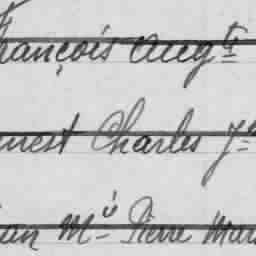 rançois Augte
nest Charles J
an Mie Pierre Mar